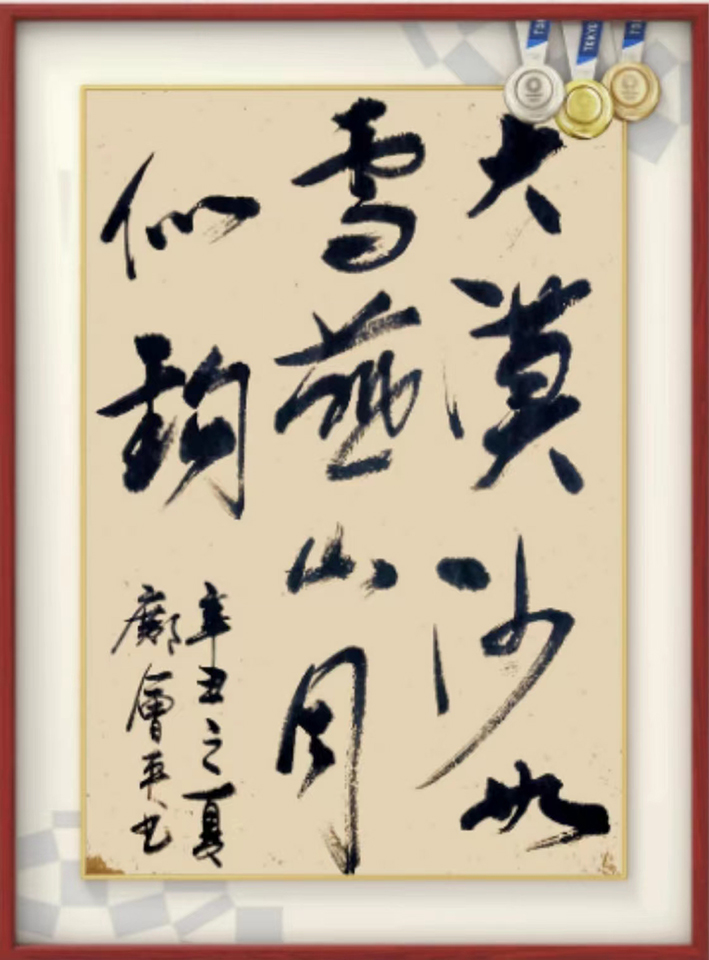 大漠沙如
雪燕山月
似鈎
辛丑之夏
鄺會平书